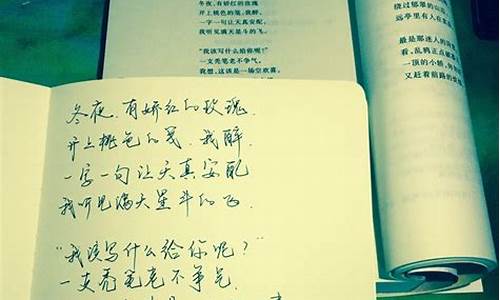 冬夜,有娇红的玫瑰
开上桃色的笺,我醉,
一字一句让天真安配,
我听见满天星斗的飞。
“我该写什么给你呢?”
一支秃笔老不争气,
我想,这该是一场空欢喜,
绕过郁翠的山
远亭里有人在
最是那迷人的
看,乱鸦正点
一顶的小轿,
又赶着前路的
冬夜,有娇红的玫瑰,
开上桃色的笺,我醉,
一字一句让天真安配
我听见满天星斗的飞.
“我该写什么给你呢?”
一支秃笔老不争气,